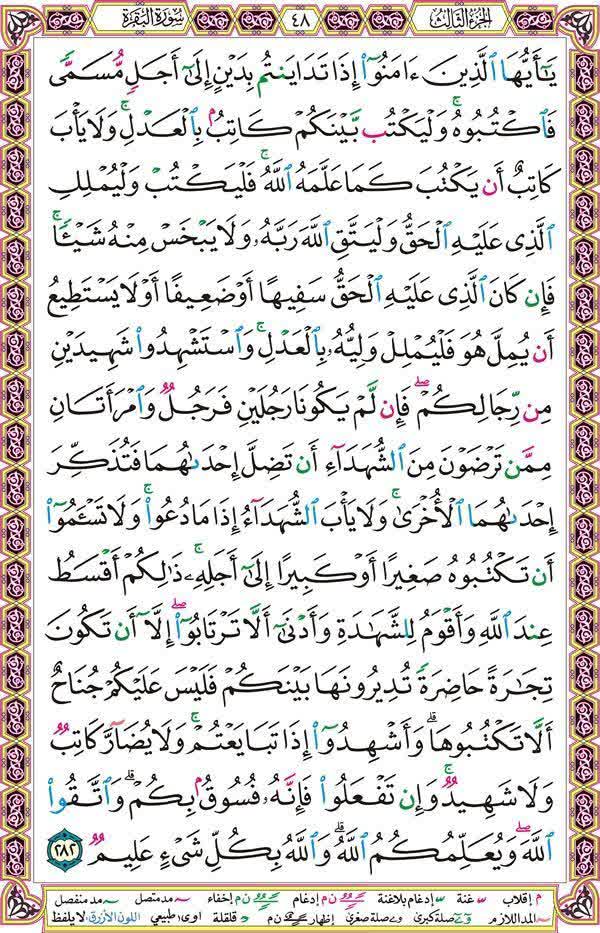 الجزء الثالث ٤٨ سورة البقرة
يَٰٓأَيُّهَا ٱلَّذِينَ ءَامَنُوٓا۟ إِذَا تَدَايَنتُم بِدَيْنٍ إِلَىٰٓ أَجَلٍ مُّسَمًّى
فَٱكْتُبُوهُ ۚ وَلْيَكْتُب بَّيْنَكُمْ كَاتِبٌۢ بِٱلْعَدْلِ ۚ وَلَا يَأْبَ
كَاتِبٌ أَن يَكْتُبَ كَمَا عَلَّمَهُ ٱللَّهُ ۚ فَلْيَكْتُبْ وَلْيُمْلِلِ
ٱلَّذِى عَلَيْهِ ٱلْحَقُّ وَلْيَتَّقِ ٱللَّهَ رَبَّهُۥ وَلَا يَبْخَسْ مِنْهُ شَيْـًٔا ۚ
فَإِن كَانَ ٱلَّذِى عَلَيْهِ ٱلْحَقُّ سَفِيهًا أَوْ ضَعِيفًا أَوْ لَا يَسْتَطِيعُ
أَن يُمِلَّ هُوَ فَلْيُمْلِلْ وَلِيُّهُۥ بِٱلْعَدْلِ ۚ وَٱسْتَشْهِدُوا۟ شَهِيدَيْنِ
مِن رِّجَالِكُمْ ۖ فَإِن لَّمْ يَكُونَا رَجُلَيْنِ فَرَجُلٌ وَٱمْرَأَتَانِ
مِمَّن تَرْضَوْنَ مِنَ ٱلشُّهَدَآءِ أَن تَضِلَّ إِحْدَىٰهُمَا فَتُذَكِّرَ
إِحْدَىٰهُمَا ٱلْأُخْرَىٰ ۚ وَلَا يَأْبَ ٱلشُّهَدَآءُ إِذَا مَا دُعُوا۟ ۚ وَلَا تَسْـَٔمُوٓا۟
أَن تَكْتُبُوهُ صَغِيرًا أَوْ كَبِيرًا إِلَىٰٓ أَجَلِهِۦ ۚ ذَٰلِكُمْ أَقْسَطُ
عِندَ ٱللَّهِ وَأَقْوَمُ لِلشَّهَٰدَةِ وَأَدْنَىٰٓ أَلَّا تَرْتَابُوٓا۟ ۖ إِلَّآ أَن تَكُونَ
تِجَٰرَةً حَاضِرَةً تُدِيرُونَهَا بَيْنَكُمْ فَلَيْسَ عَلَيْكُمْ جُنَاحٌ
أَلَّا تَكْتُبُوهَا ۗ وَأَشْهِدُوٓا۟ إِذَا تَبَايَعْتُمْ ۚ وَلَا يُضَآرَّ كَاتِبٌ
وَلَا شَهِيدٌ ۚ وَإِن تَفْعَلُوا۟ فَإِنَّهُۥ فُسُوقٌۢ بِكُمْ ۗ وَٱتَّقُوا۟
ٱللَّهَ ۖ وَيُعَلِّمُكُمُ ٱللَّهُ ۗ وَٱللَّهُ بِكُلِّ شَىْءٍ عَلِيمٌ ٢٨٢
م إقلاب غنة إدغام بلاغنة ن م إدغام ن م إخفاء مد متصل مد منفصل
المد اللازم صلة كبرى صلة صغرى إظهار ن م قلقلة طبيعي اللون الأزرق لا يلفظ